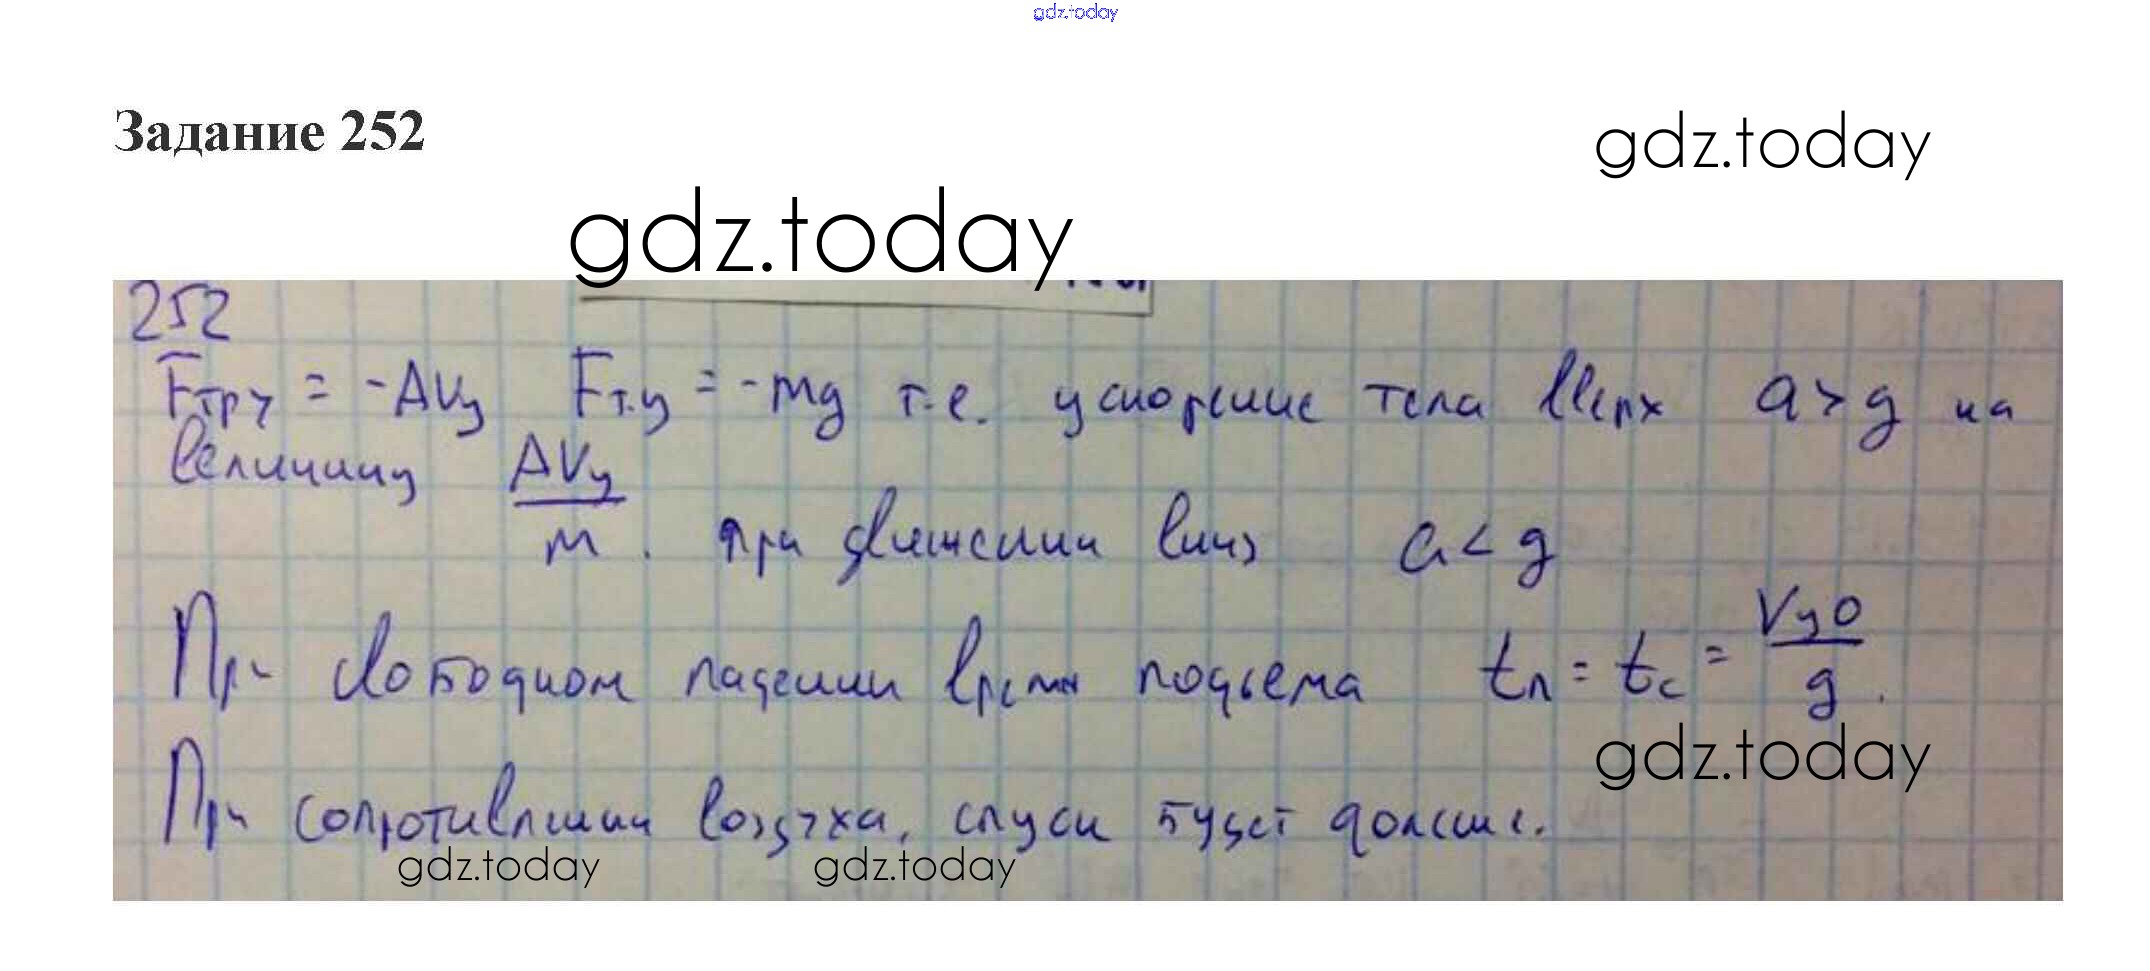 gdz.today
Задание 252
gdz.today
gdz.today
252
Fтр y = -ΔVy Fт.y = -mg т.е. ускорение тела вверх a > g на
величину ΔVy / m . при движении вниз a < g
При свободном падении время подъема tп = tс = Vy0 / g .
gdz.today
При сопротивлении воздуха, спуск будет дольше.
gdz.today gdz.today